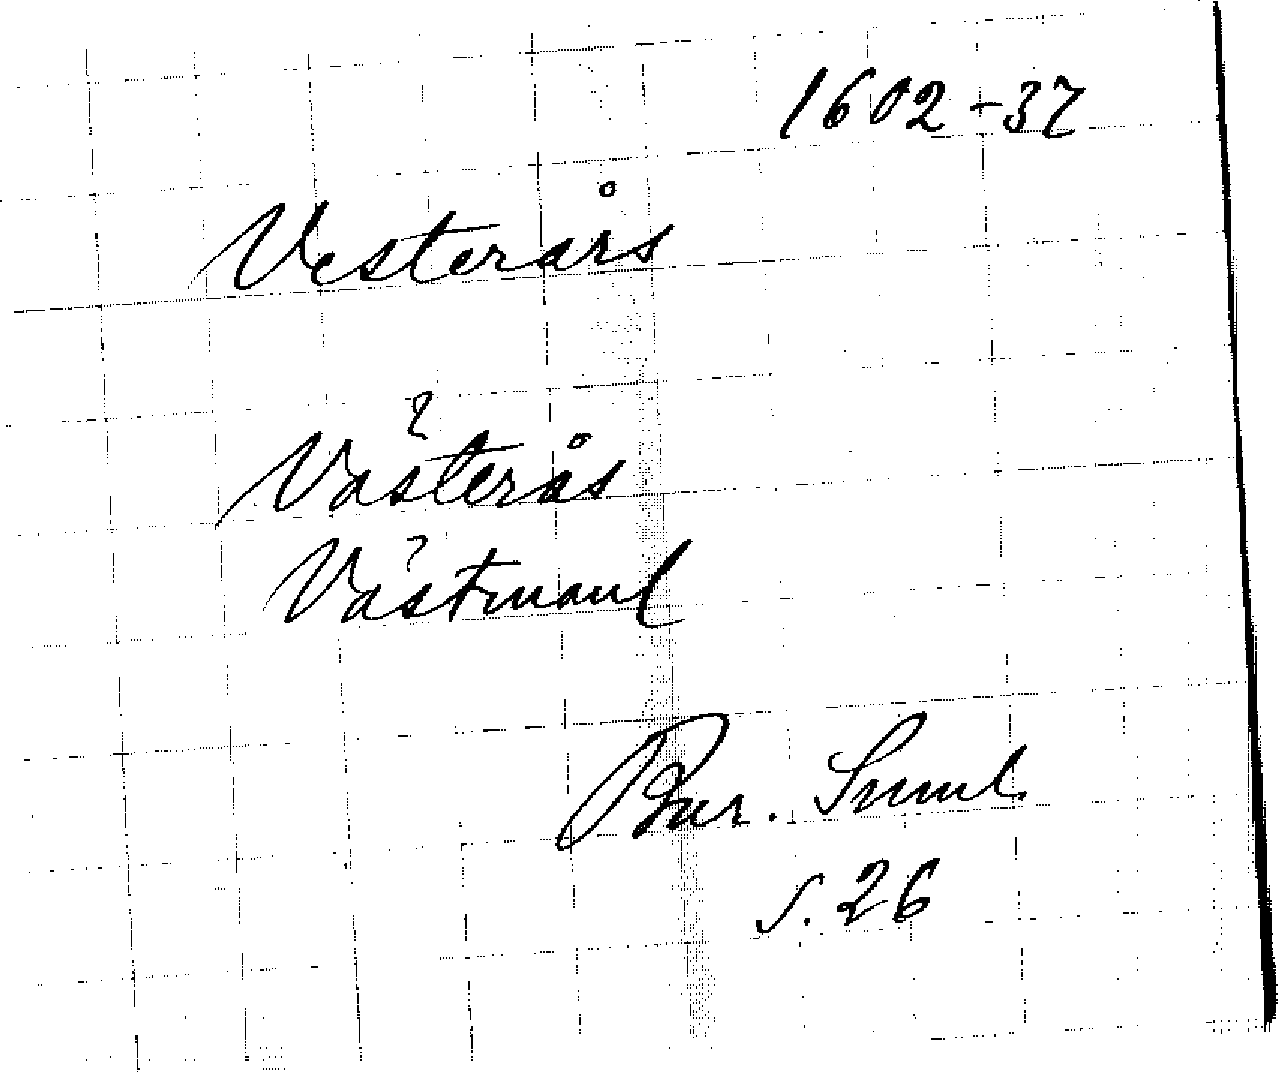 1602-37
Vesterårs
Västerås
Västmanl
Bur. Suml.
s. 26